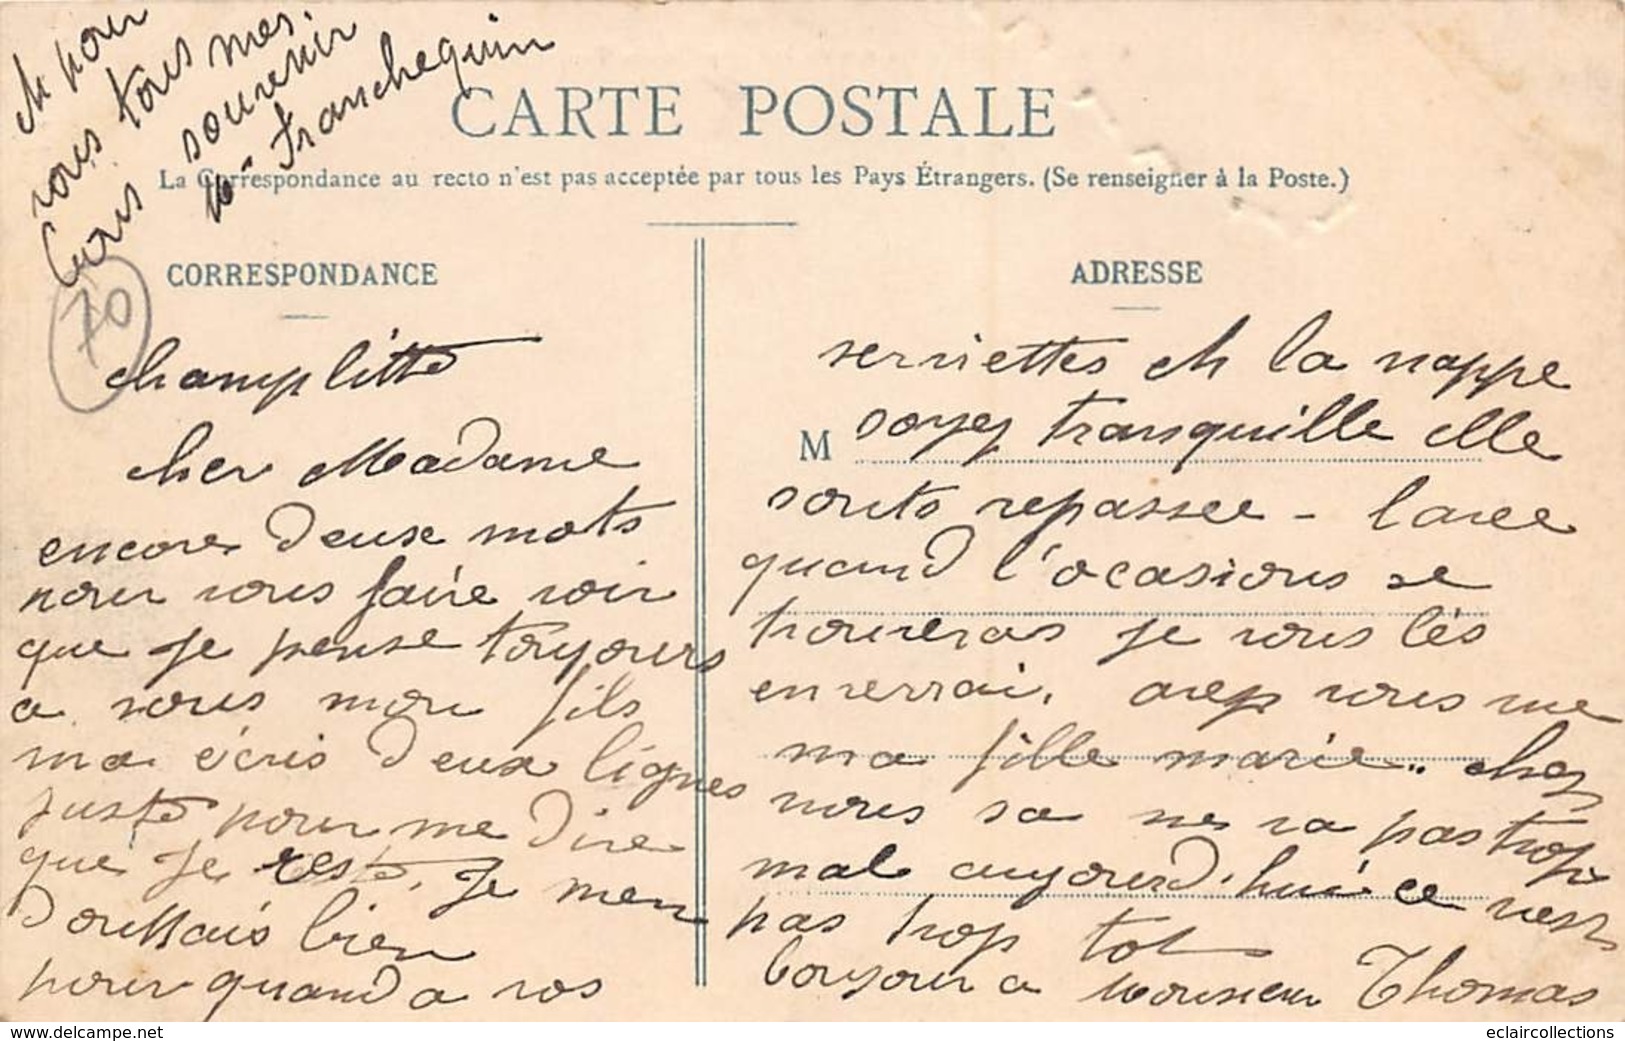 CARTE POSTALE
La Correspondance au recto n'est pas acceptée par tous les Pays Étrangers. (Se renseigner à la Poste.)
CORRESPONDANCE
ADRESSE
70
champlitte
cher Madame
encore deux mots
pour vous faire voir
que je pense toujours
a vous mon fils
ma écris deux lignes
juste pour me dire
que je reste. je men
douttais bien
pour quand a vos
serviettes et la nappe
M soyez tranquille elle
sonts repassee - lavee
quand l'ocasions se
trouveras je vous lés
enverrai. avep vous vue
ma fille marie.. chez
nous sa ne va pas trop
mal aujourd'hui ce nest
pas trop tot
bonjour a monsieur Thomas
et pour
vous tous mes
souvenir
Franchequin
eclaircollections
www.delcampe.net